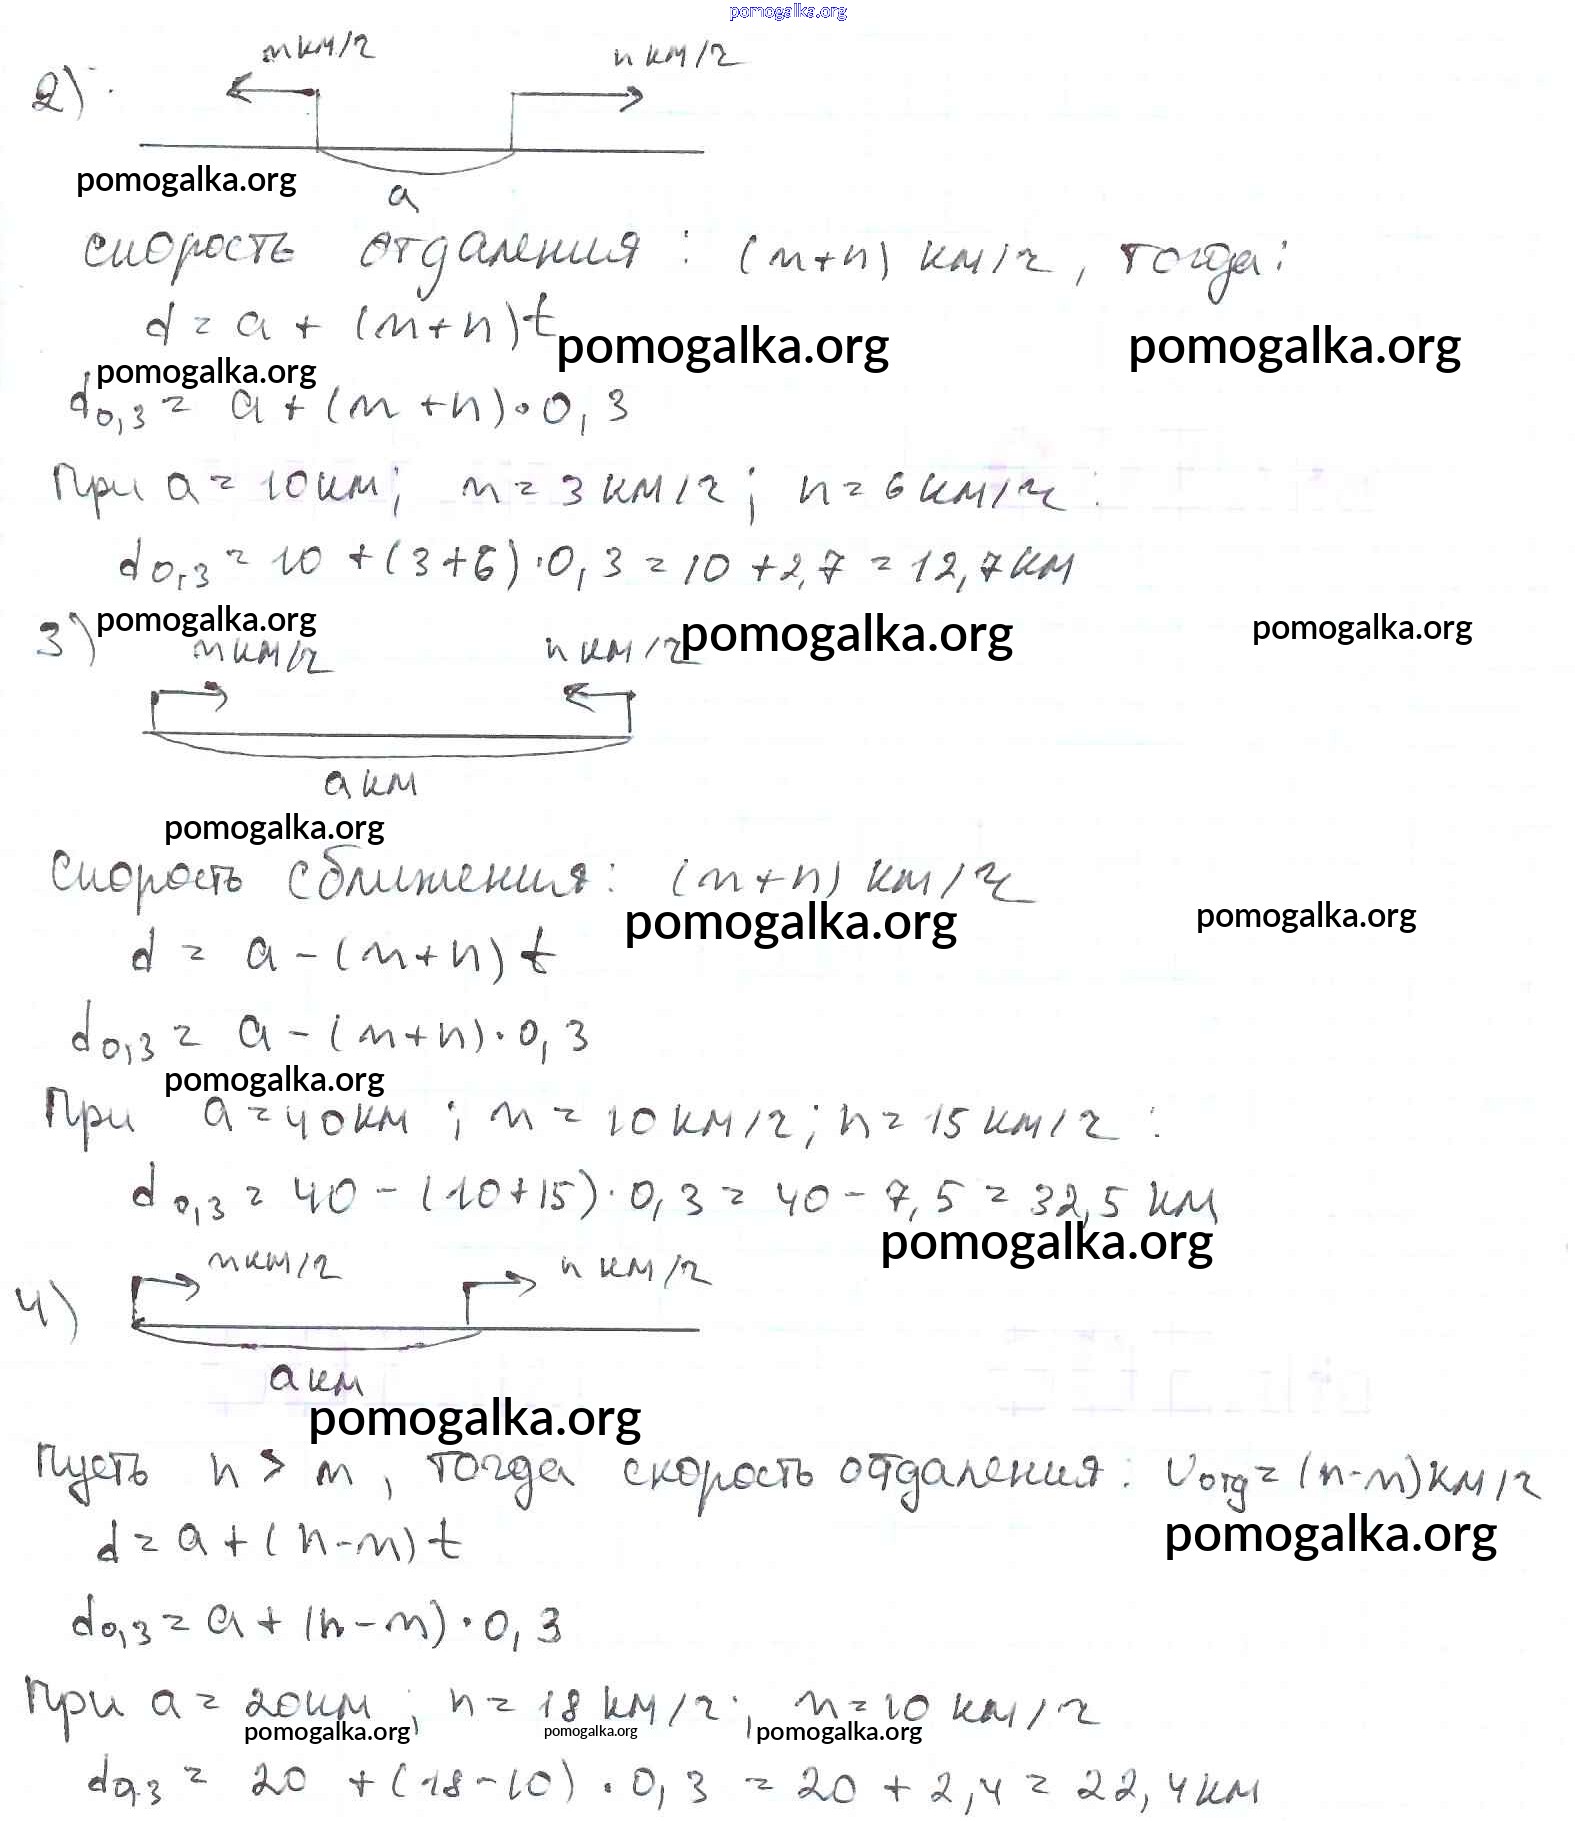 pomogalka.org
m км/ч n км/ч
2)
pomogalka.org
a
скорость отдаления : (m+n) км/ч, тогда:
d = a + (m+n)t
pomogalka.org pomogalka.org
pomogalka.org
d0,3 = a + (m+n)·0,3
При a = 10 км; m = 3 км/ч; n = 6 км/ч :
d0,3 = 10 + (3+6)·0,3 = 10 + 2,7 = 12,7 км
3) pomogalka.org pomogalka.org pomogalka.org
m км/ч n км/ч
a км
pomogalka.org
Скорость сближения : (m+n) км/ч
pomogalka.org pomogalka.org
d = a - (m+n)t
d0,3 = a - (m+n)·0,3
pomogalka.org
При a = 40 км ; m = 10 км/ч ; n = 15 км/ч :
d0,3 = 40 - (10+15)·0,3 = 40 - 7,5 = 32,5 км
pomogalka.org
m км/ч n км/ч
4)
a км
pomogalka.org
Пусть n > m, тогда скорость отдаления : vотд = (n-m) км/ч
pomogalka.org
d = a + (n-m)t
d0,3 = a + (n-m)·0,3
При a = 20 км ; n = 18 км/ч ; m = 10 км/ч
pomogalka.org pomogalka.org pomogalka.org
d0,3 = 20 + (18-10)·0,3 = 20 + 2,4 = 22,4 км